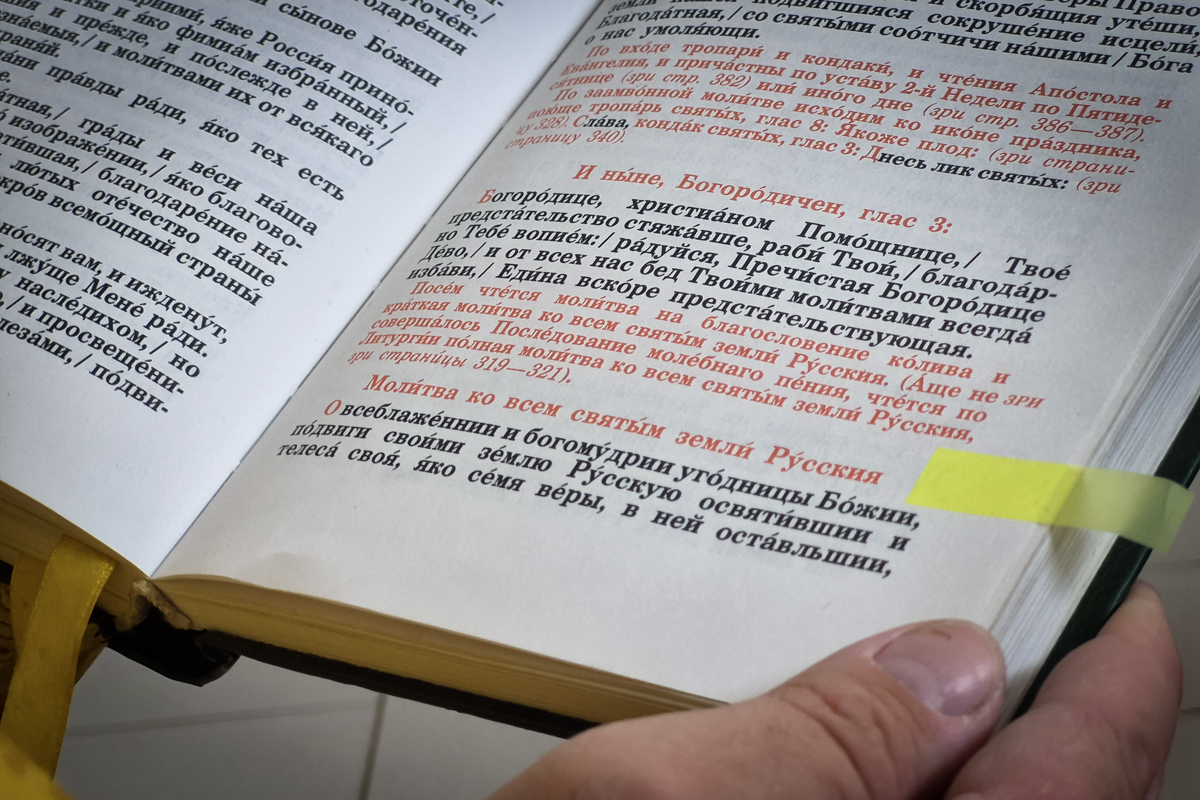 сы́нове Бо́жии
ри́ми, я́же Росси́я принó-
тки и я́ко фимиа́м избра́нный, /
ния и пре́жде, и послежде в ней, /
зна́емыя, / и моли́твами их от вся́каго
ани пра́вды ра́ди, я́ко тех есть
гра́ды и ве́си на́ша
изображе́нии, / я́ко благово-
благодаре́ние на́-
лю́тых оте́чество на́ше
кро́в всемо́щный страны́
но́сят вам, и изжену́т,
лжу́ще Мене́ ра́ди.
насле́дихом, / но
и просвеще́ни-
по́дви-
подвигшияся сокруше́ние исцели́,
Благода́тная, / со святы́ми соо́тчичи на́шими / Бо́га
о нас умоля́ющи.
По вхо́де тропари́ и кондаки́, и чте́ния Апо́стола и
Ева́нгелия, и прича́стны по уста́ву 2-й Неде́ли по Пятиде-
ся́тнице (зри стр. 382) или́ ино́го дне (зри стр. 386—387).
По заамво́нной моли́тве исхо́дим ко ико́не пра́здника,
пою́ще тропа́рь святы́х, глас 8: Я́коже плод: (зри страни-
цу 328). Сла́ва, конда́к святы́х, глас 3: Днесь лик святы́х: (зри
страницу 340).
И ны́не, Богоро́дичен, глас 3:
Богоро́дице, христиа́ном Помо́щнице, / Твое́
предста́тельство стяжа́вше, раби́ Твои́, / благода́р-
но Тебе́ вопие́м: / ра́дуйся, Пречи́стая Богоро́дице
Де́во, / и от всех нас бед Твои́ми моли́твами всегда́
изба́ви, / Еди́на вско́ре предста́тельствующая.
Посе́м чте́тся моли́тва на благослове́ние ко́лива и
кра́ткая моли́тва ко всем святы́м земли́ Ру́сския. (А́ще не зри
соверша́лось После́дование моле́бнаго пе́ния, чте́тся по
Литурги́и по́лная моли́тва ко всем святы́м земли́ Ру́сския,
зри страни́цы 319—321).
Моли́тва ко всем святы́м земли́ Ру́сския
О всеблаже́ннии и богому́дрии уго́дницы Бо́жии,
по́двиги свои́ми зе́млю Ру́сскую освяти́вшии и
телеса́ своя́, я́ко се́мя ве́ры, в ней оста́вльшии,